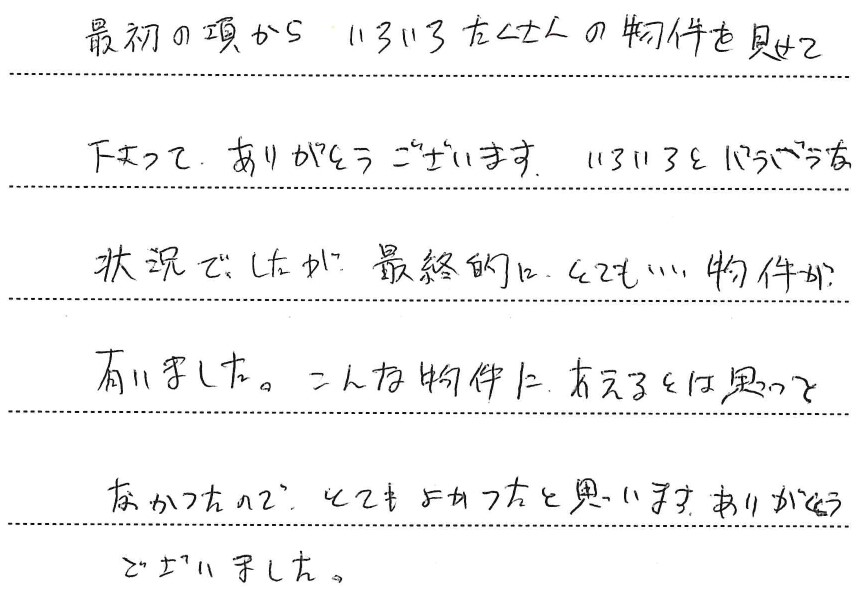 最初の項から いろいろたくさんの物件を見せて
下さって、ありがとうございます。 いろいろとバラバラな
状況でしたが、最終的に、とてもいい物件が
有りました。こんな物件に、会えるとは思って
なかったので、とてもよかったと思います。ありがとう
ございました。